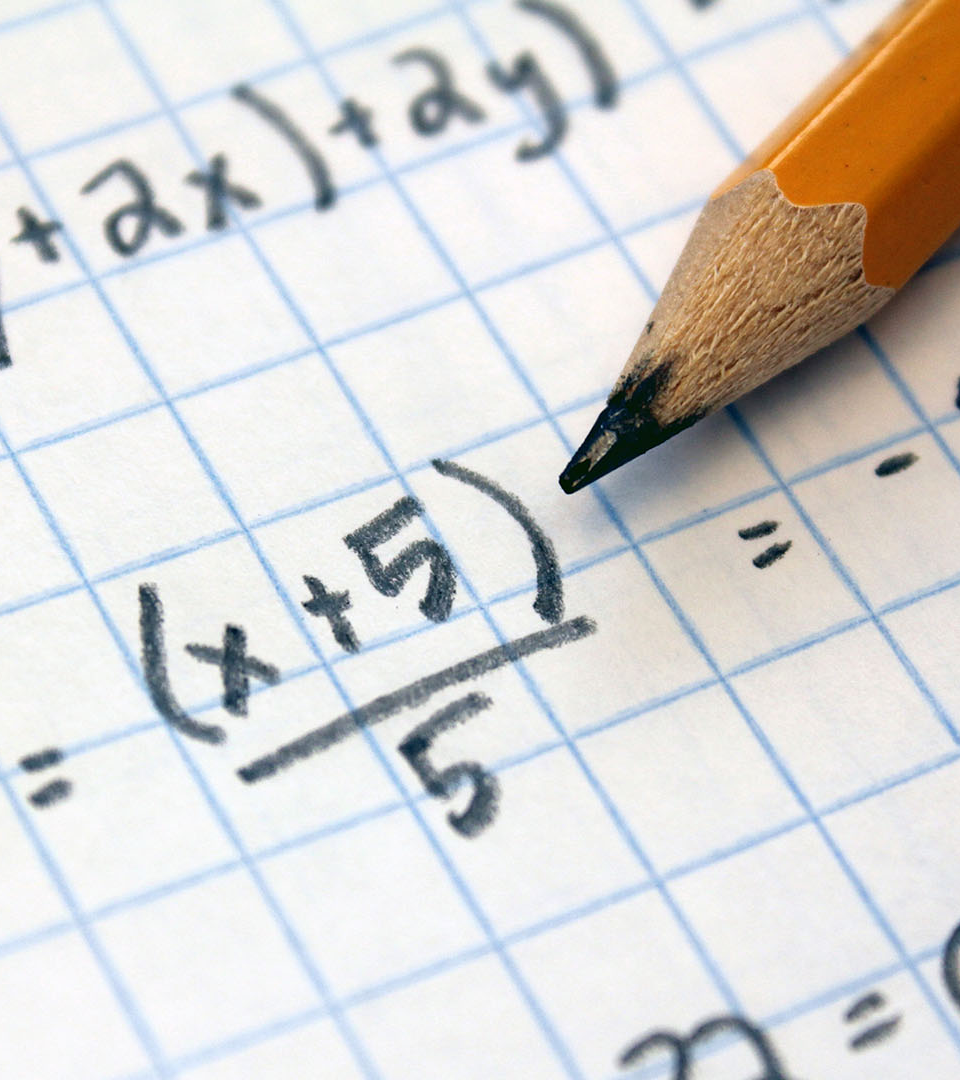 +2x)+2y)
= (x+5) = -
5
=